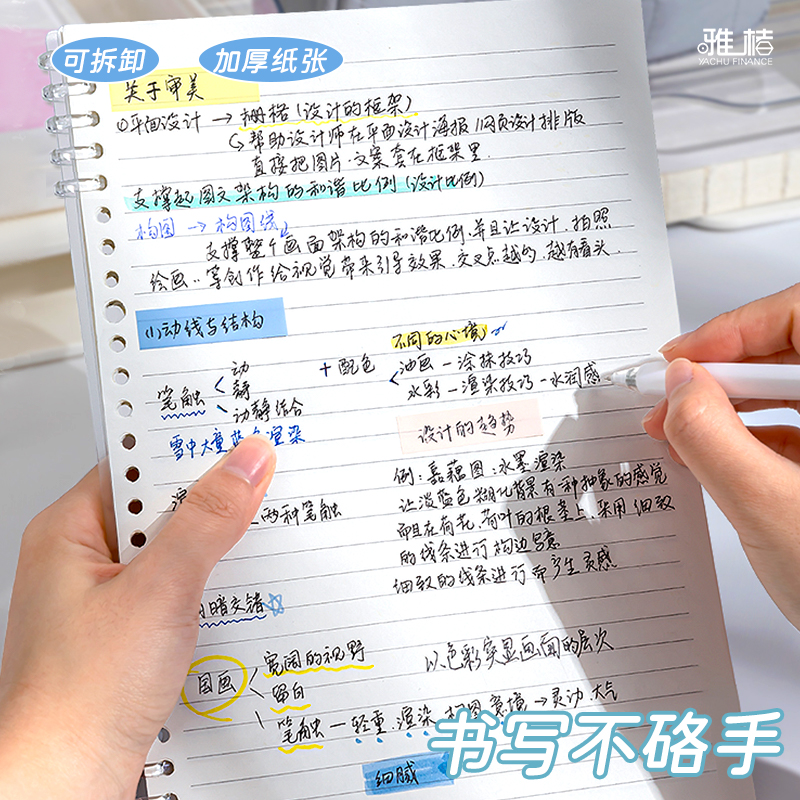 可拆卸
加厚纸张
雅楮
YACHU FINANCE
关于审美
①平面设计 → 栅格(设计的框架)
帮助设计师在平面设计海报 网页设计排版
直接把图片.文案套在框架里.
支撑起图文架构的和谐比例(设计比例)
构图 → 构图线
支撑整个画面架构的和谐比例.并且让设计.拍照
绘画..等创作给视觉带来引导效果.交叉点越多.越有看头.
(1)动线与结构
不同的心境
笔触 < 动
静
动静结合
+ 配色
油画 - 涂抹技巧
水彩 - 渲染技巧 - 水润感
雪中大量蓝色渲染
设计的趋势
两种笔触
例:嘉藕图:水墨渲染
让淡蓝色糊化背景有一种抽象的感觉
而且在荷花.荷叶的根茎上.采用细致
的线条进行构边写意
细致的线条进行而产生灵感
暗交错
国画 < 宽阔的视野
留白
笔触 - 轻重.渲染.构图.意境 → 灵动.大气
以色彩突显画面的层次
细腻
书写不硌手